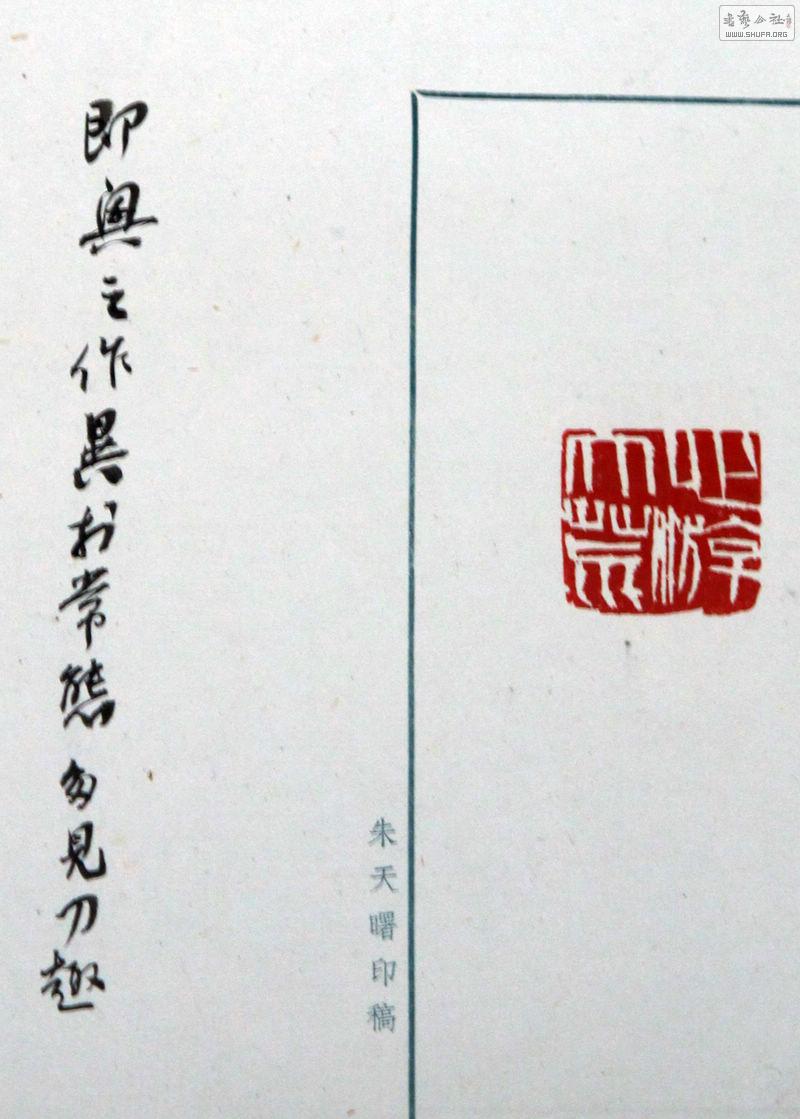 書藝公社
WWW.SHUFA.ORG
朱天曙印稿
即興之作異於常態多見刀趣